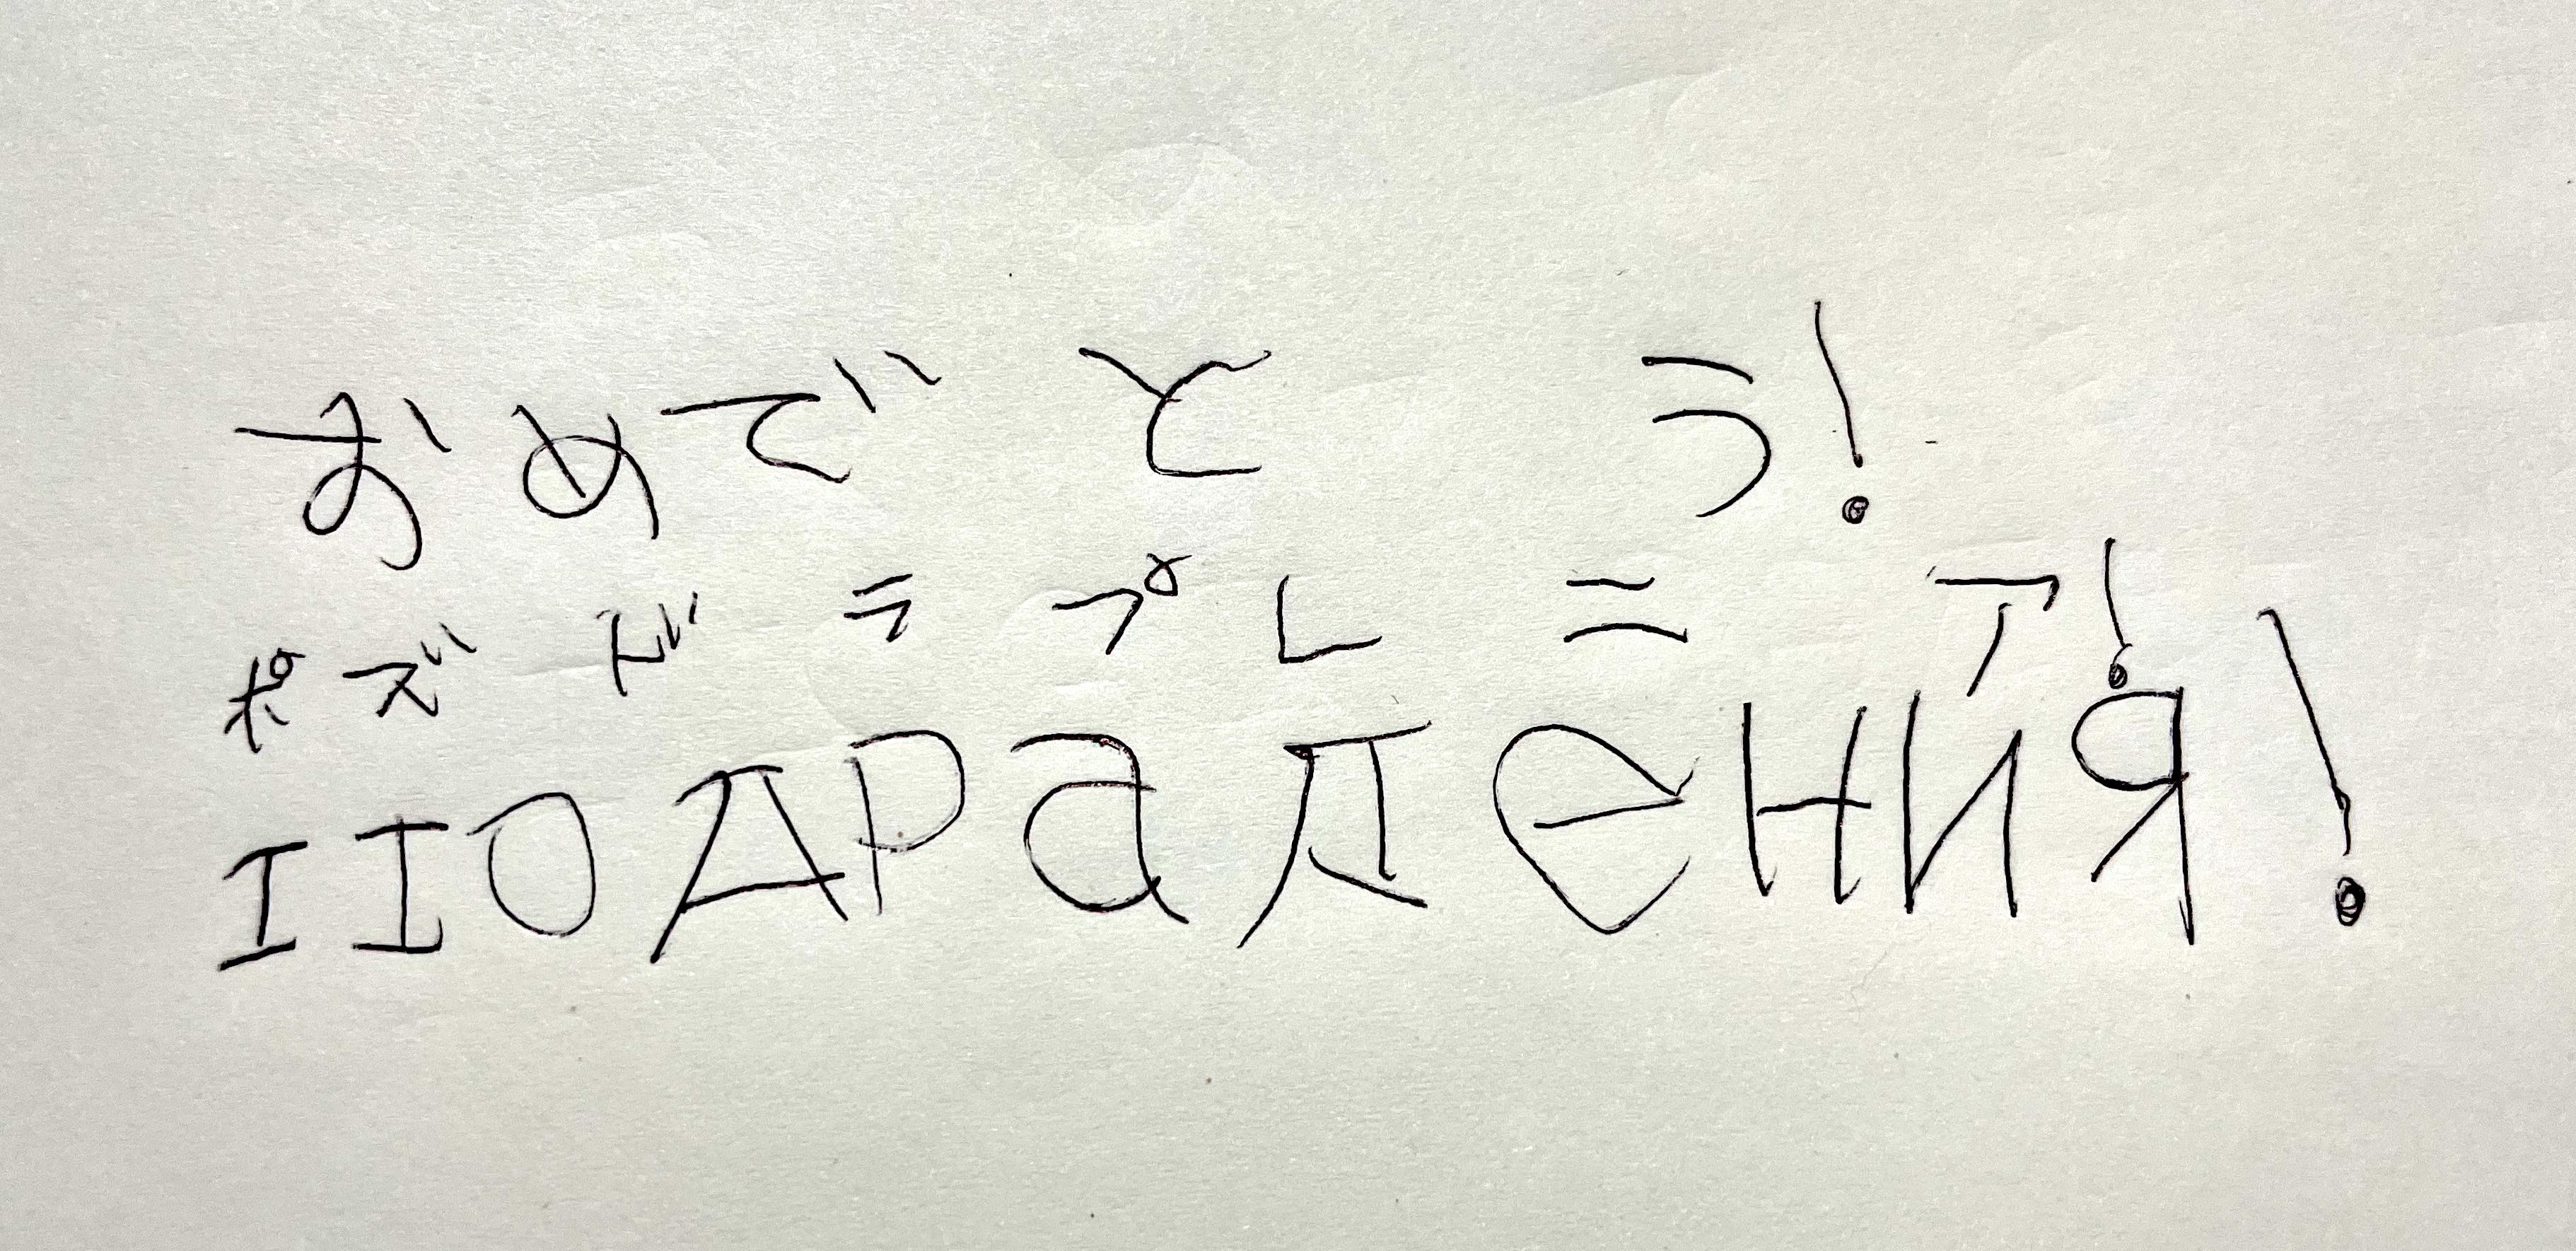 おめでとう!
ポズドラプレニア!
ПОДРаЛеНИЯ!